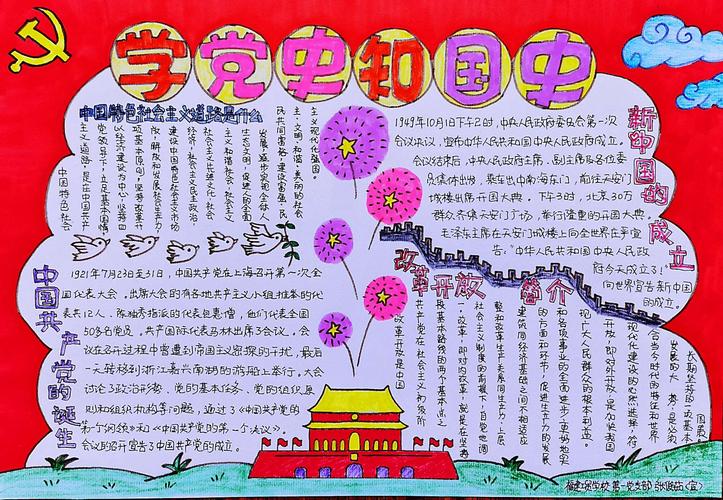 学党史知国史
中国特色社会主义道路是什么
中国特色社会
主义道路,是在中国共产
党领导下,立足基本国情
以经济建设为中心,坚持四
项基本原则,坚持改革开
放,解放和发展社会生产力
建设中国特色社会主义市场
经济,社会主义民主政治,
社会主义先进文化,社会
主义和谐社会,社会主义
生态文明,促进人的全面
发展,逐步实现全体人
民共同富裕,建设富强,民
主,文明,和谐,美丽的社会
主义现代化强国。
新中国的成立
1949年10月1日下午2时,中央人民政府委员会第一次
会议决议,宣布中华人民共和国中央人民政府成立。
会议结束后,中央人民政府主席、副主席及各位委
员集体出发,乘车出中南海东门,前往天安门
城楼出席开国大典。下午3时,北京30万
群众齐集天安门广场,举行隆重的开国大典。
毛泽东主席在天安门城楼上向全世界庄严宣
告:"中华人民共和国中央人民政
府今天成立了!"
向世界宣告新中国
的成立。
中国共产党的诞生
1921年7月23日至31日,中国共产党在上海召开第一次全
国代表大会。出席大会的有各地共产主义小组推举的代
表共12人,陈独秀指派的代表包惠僧,他们代表全国
50多名党员。共产国际代表马林出席了会议。会
议在召开过程中曾遭到帝国主义密探的干扰,最后
一天转移到浙江嘉兴南湖的游船上举行。大会
讨论了政治形势、党的基本任务、党的组织原
则和组织机构等问题,通过了《中国共产党的
第一个纲领》和《中国共产党的第一个决议》。
会议的召开宣告了中国共产党的成立。
改革开放简介
改革开放是中国
共产党在社会主义初级阶
段基本路线的两个基本点之
一。改革,即对内改革,就是在坚持
社会主义制度的前提下,自觉地调
整和改革生产关系同生产力,上层
建筑同经济基础之间不相适应
的方面和环节,促进生产力的发展
和各项事业的全面进步,更好地实
现广大人民群众的根本利益。
开放,即对外开放,是加快我国
现代化建设的必然选择,符
合当今时代的特征和世界
发展的大势,是必须
长期坚持的一项基本
国策。
学校 第一党支部